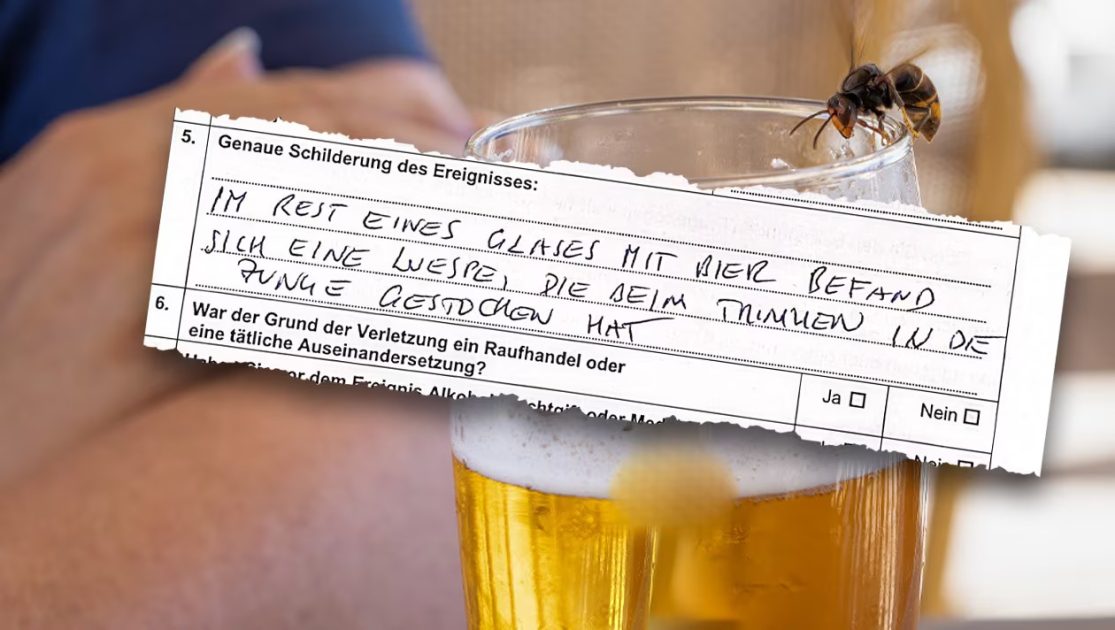 5. Genaue Schilderung des Ereignisses:
IM REST EINES GLASES MIT BIER BEFAND
SICH EINE WESPE, DIE BEIM TRINKEN IN DIE
ZUNGE GESTOCHEN HAT
6. War der Grund der Verletzung ein Raufhandel oder
eine tätliche Auseinandersetzung?
Ja ☐ Nein ☐
dem Ereignis oder
Nein